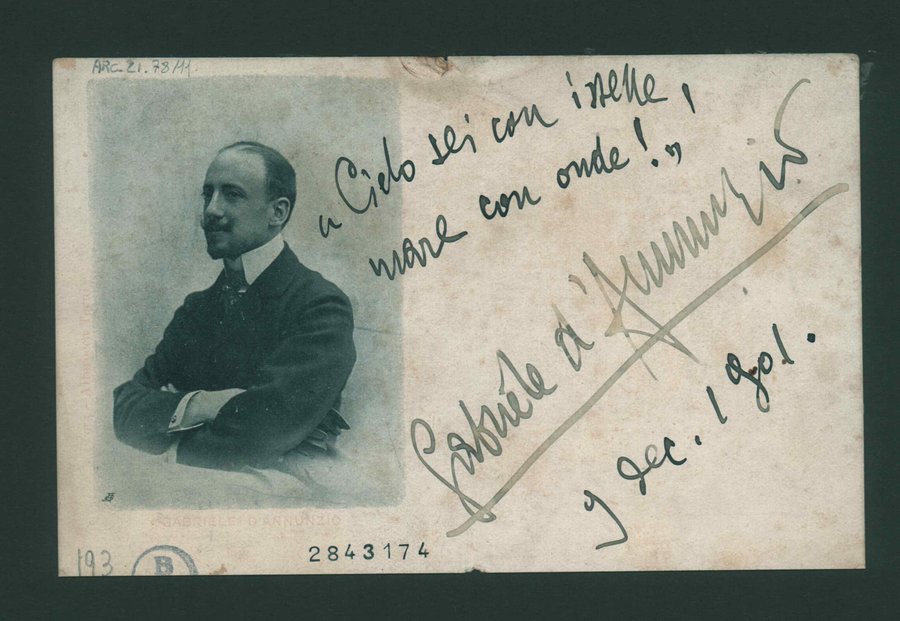 ARC. 21. 78/11.
« Cielo sei con istelle,
mare con onde! »
Gabriele d'Annunzio
9 dec. 1901.
GABRIELE D'ANNUNZIO
2843174
193
B